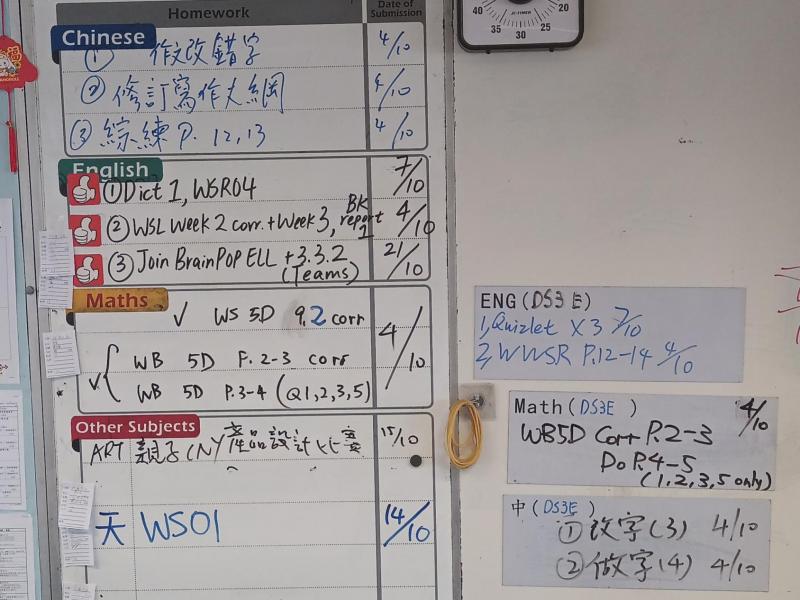 Homework
Date of Submission
Chinese
① 作文改錯字 4/10
② 修訂寫作大綱 4/10
③ 綜練 P. 12,13 4/10
English
① Dict 1, WSR04 7/10
② WSL Week 2 corr. + Week 3, BK report 1 4/10
③ Join BrainPop ELL + 3.3.2 (Teams) 21/10
Maths
✓ WS 5D 9.2 corr
4/10
✓ { WB 5D P. 2-3 corr
WB 5D P.3-4 (Q1,2,3,5)
Other Subjects
ART 親子(N)產品設計比賽 15/10
天 WS01 14/10
40 20
35 30 25
ENG (DS3E)
1, Quizlet X3 7/10
2, WWSR P.12-14 4/10
Math (DS3E) 4/10
WB5D Corr P.2-3
Do P.4-5
(1,2,3,5 only)
中 (DS3E)
① 改字(3) 4/10
② 做字(4) 4/10